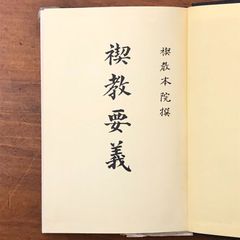 禊教本院撰
禊教要義